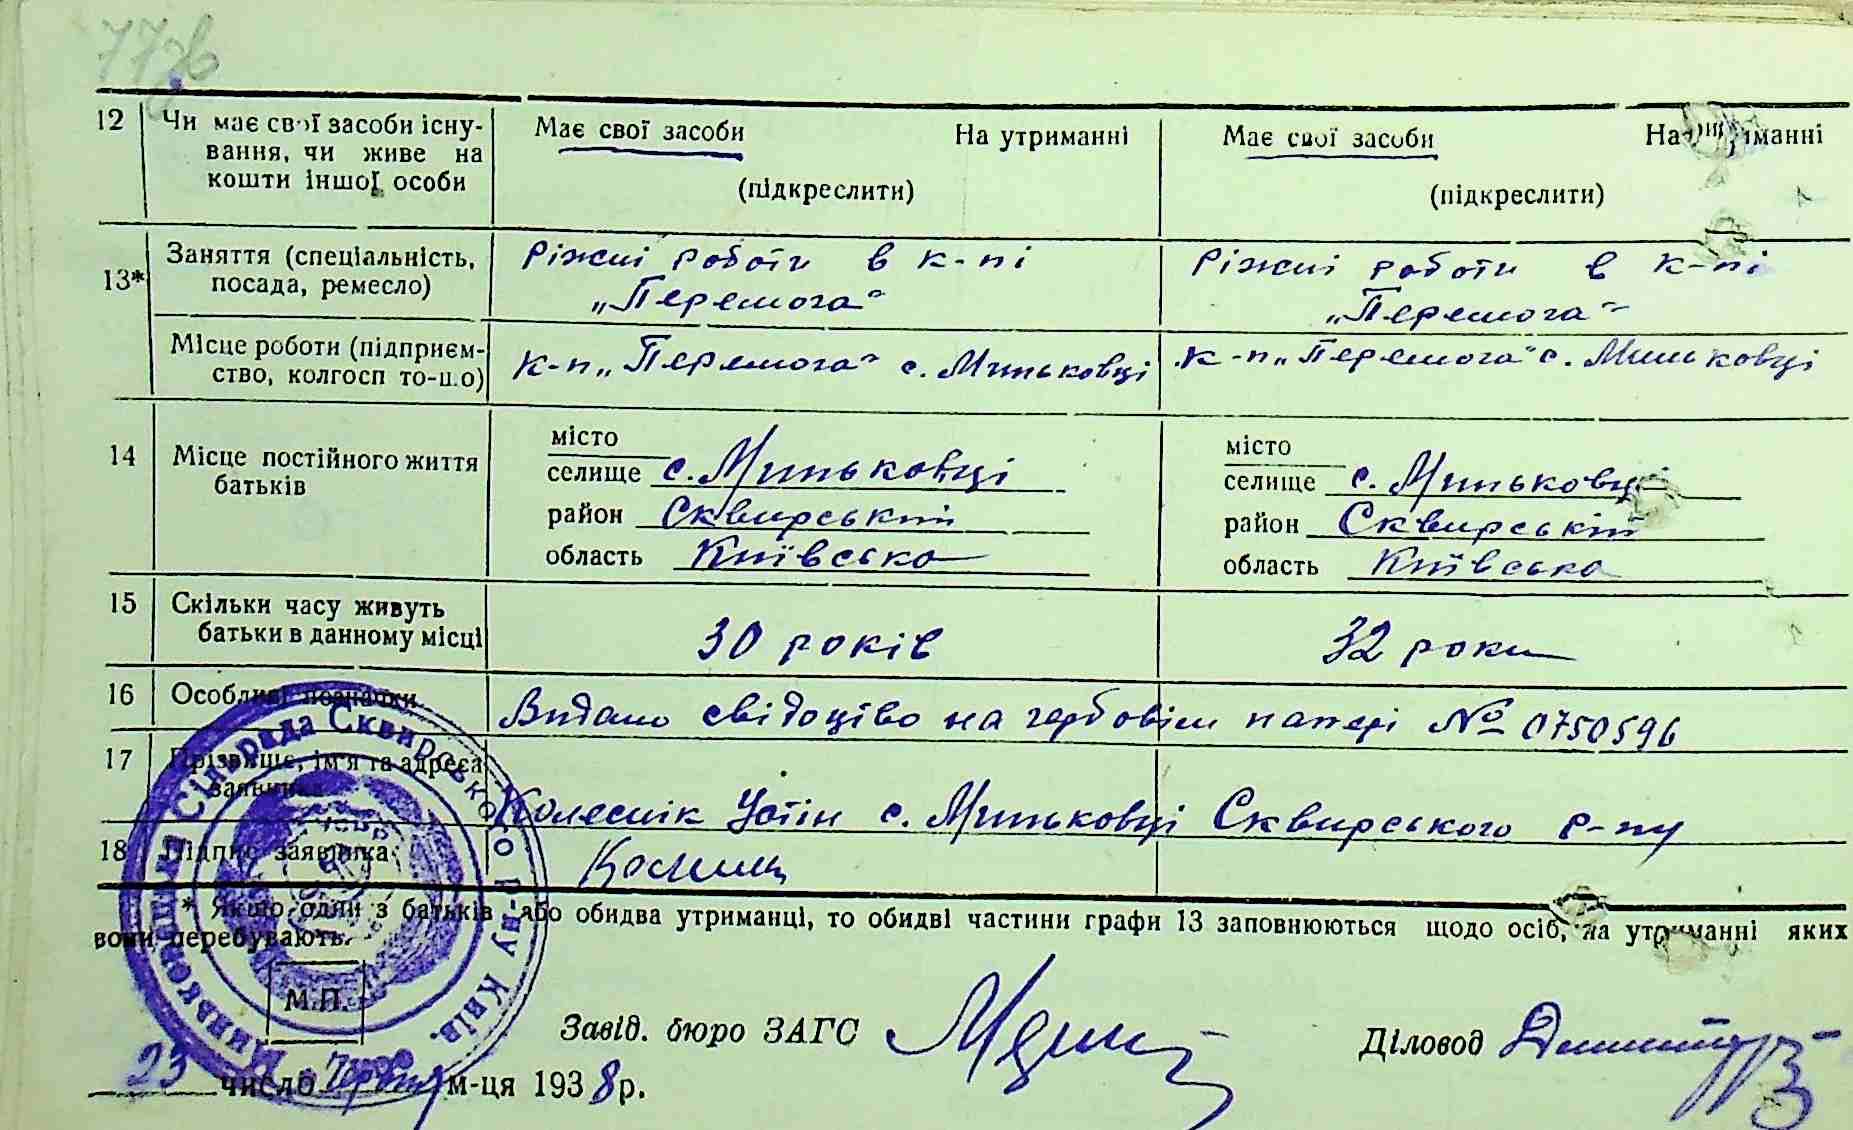 77зв
12 Чи має свої засоби існу- Має свої засоби На утриманні Має свої засоби На утриманні
вання, чи живе на
кошти іншої особи (підкреслити) (підкреслити)
13* Заняття (спеціальність, Ріжні роботи в к-пі Ріжні роботи в к-пі
посада, ремесло) „Перемога" „Перемога"
Місце роботи (підприєм- к-п „Перемога" с. Миньковці к-п „Перемога" с. Миньковці
ство, колгосп то-що)
місто місто
14 Місце постійного життя селище с. Миньковці селище с. Миньковці
батьків район Сквирський район Сквирській
область Київська область Київська
15 Скільки часу живуть 30 років 32 роки
батьки в данному місці
16 Особливі позначки Видано свідоцтво на гербовім папері № 0750596
17 Прізвище, ім'я та адреса
заявника Колеснік Устін с. Миньковці Сквирського р-ну
18 Підпис заявника
* Якщо один з батьків або обидва утриманці, то обидві частини графи 13 заповнюються щодо осіб, на утриманні яких
вони перебувають.
Миньковецька Сільрада Сквирського р-ну Київ.
М.П.
Завід. бюро ЗАГС Діловод
23 число м-ця 1938 р.